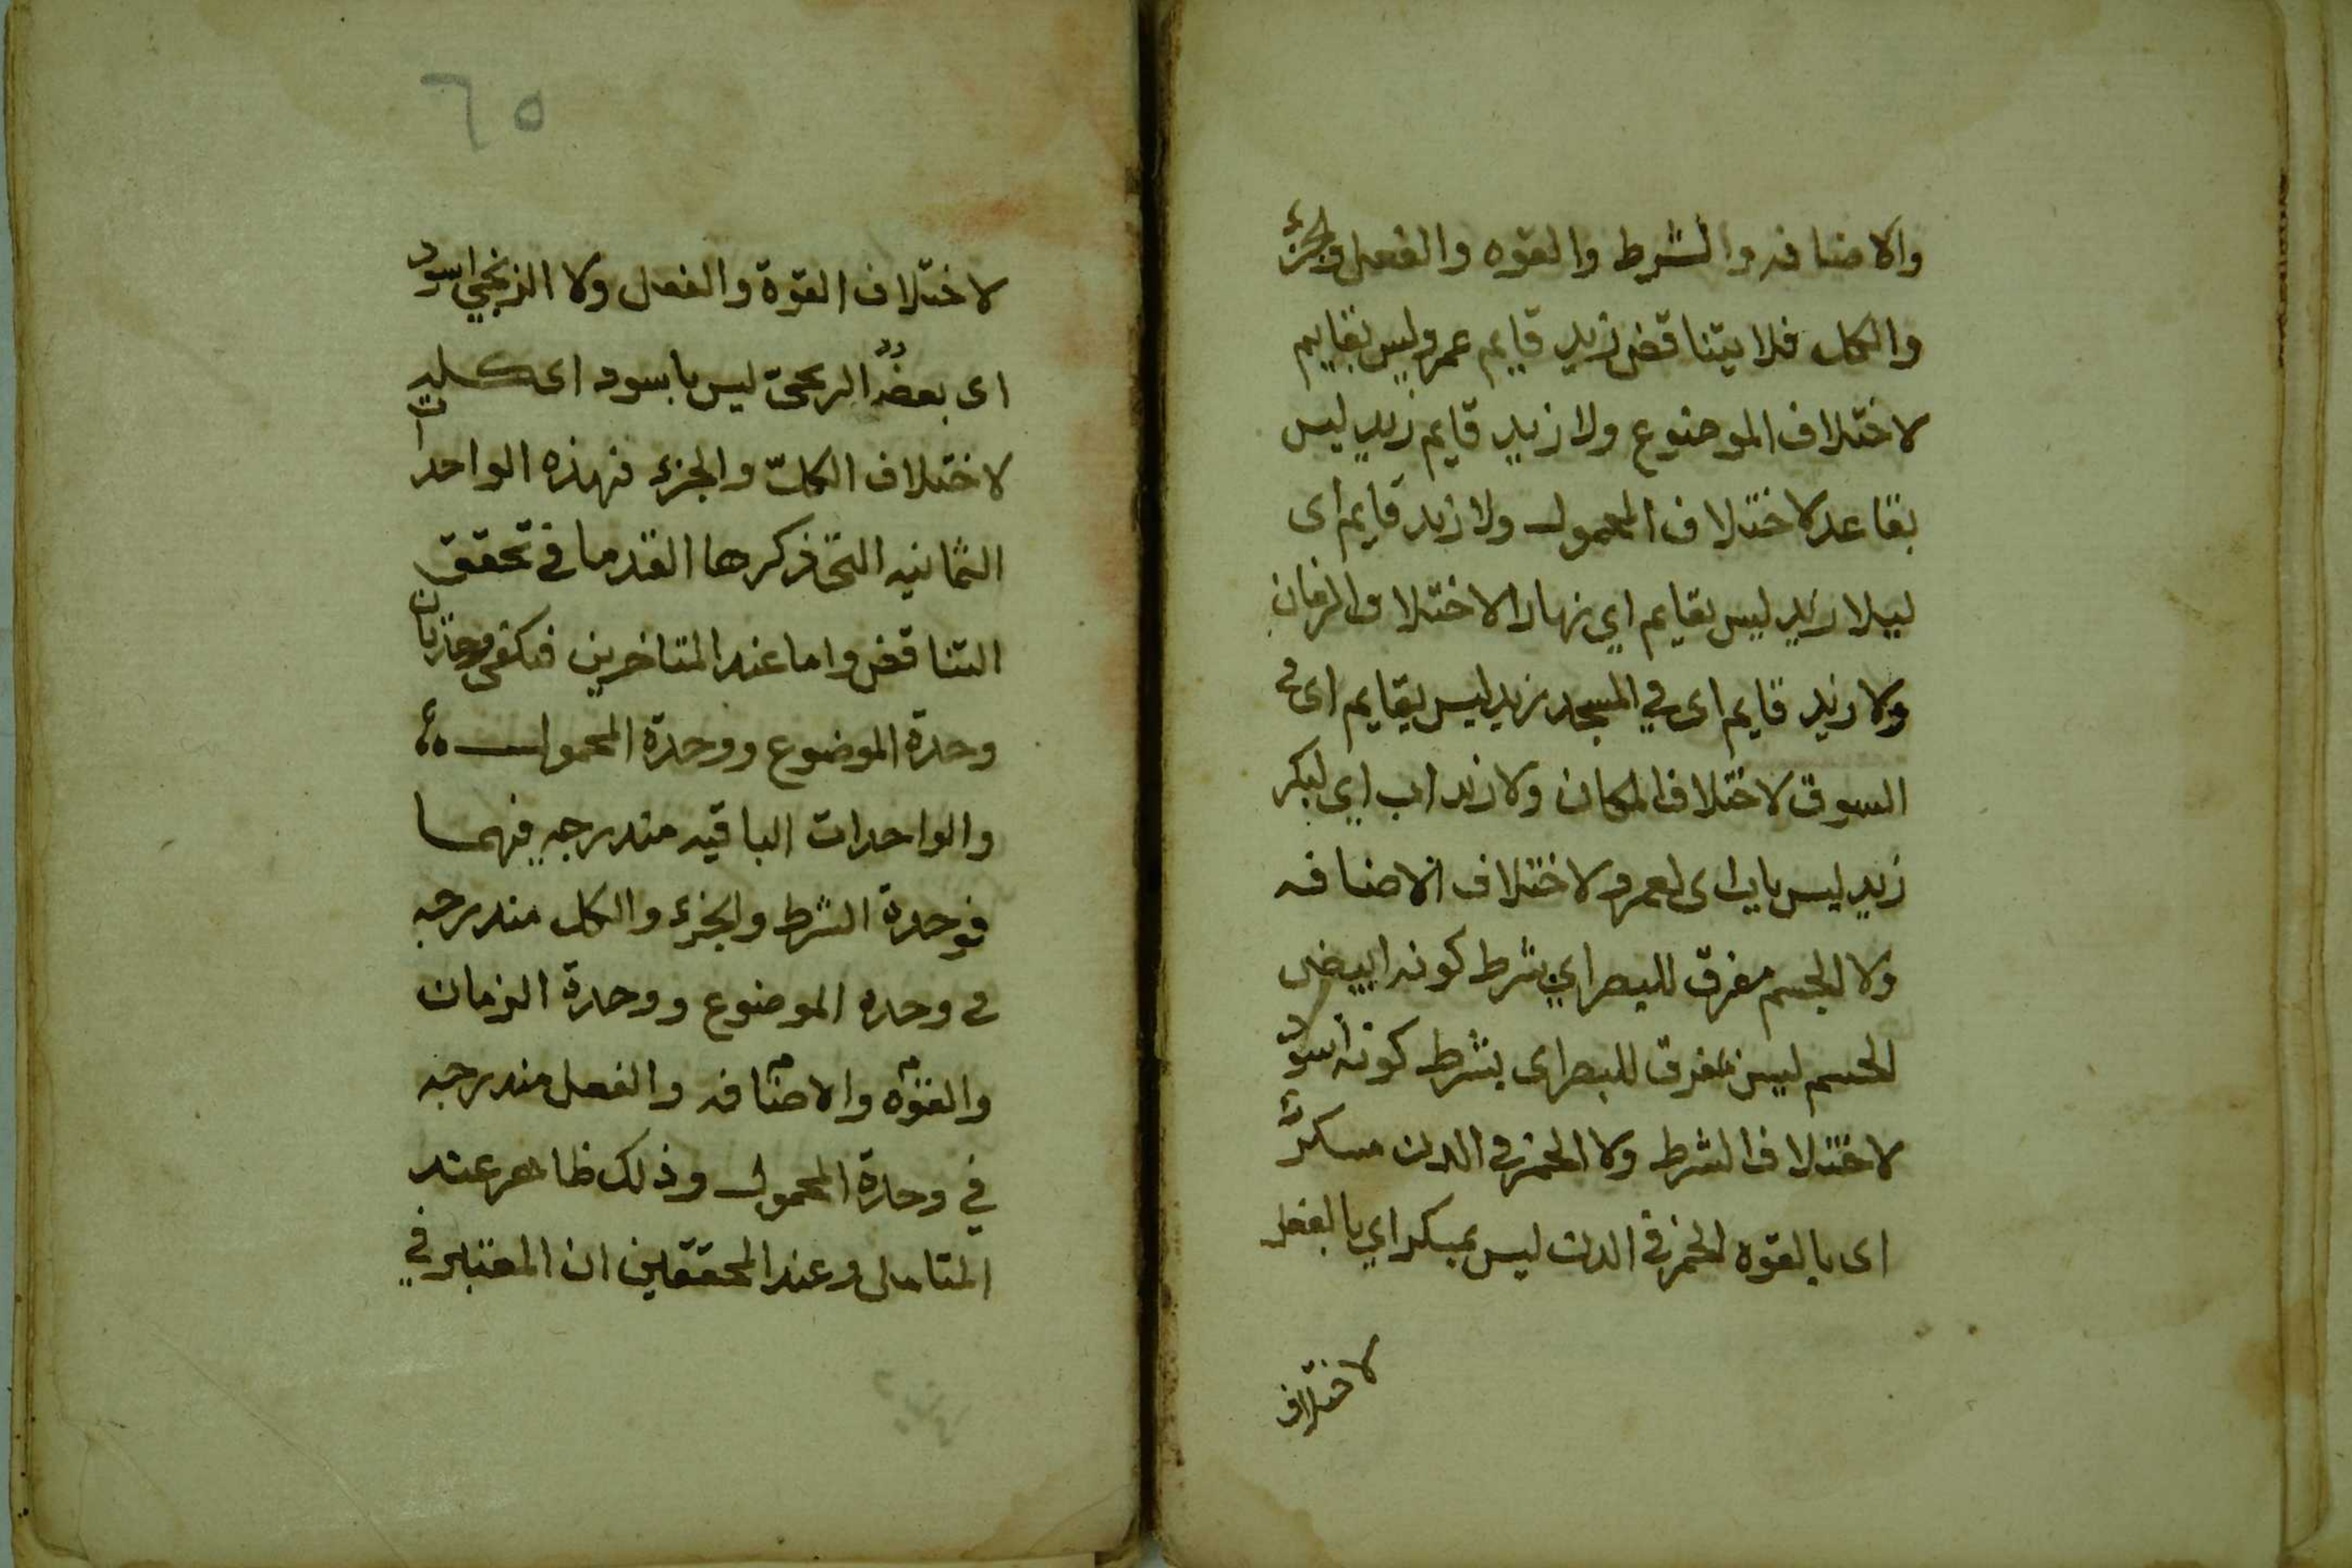 والاضافه والشرط والقوه والفعل والجزء
والكل فلا يتناقض زيد قايم عمرو ليس بقايم
لاختلاف الموضوع ولا زيد قايم زيد ليس
بقاعد لاختلاف المحمول ولا زيد قايم اى
ليلا زيد ليس بقايم اي نهارا لاختلاف الزمان
ولا زيد قايم اى في المسجد زيد ليس بقايم اى في
السوق لاختلاف المكان ولا زيد اب اي لبكر
زيد ليس باب اى لعمرو لاختلاف الاضافه
ولا الجسم مفرق للبصر اي بشرط كونه ابيض
الجسم ليس بمفرق للبصر اى بشرط كونه اسود
لاختلاف الشرط ولا الخمز في الدن مسكرٌ
اى بالقوه الخمر في الدن ليس بمسكر اي بالفعل
لاختلاف
٦٥
لاختلاف القوة والفعل ولا الزنجي اسود
اى بعضه الزنجى ليس باسود اى كله
لاختلاف الكل والجزء فهذه الواحدات
الثمانيه التى ذكرها القدما في تحقق
التناقض واما عند المتاخرين فتكفى وحدتان
وحدة الموضوع ووحدة المحمول
والواحدات الباقيه مندرجه فيهما
فوحدة الشرط والجزء والكل مندرجه
في وحده الموضوع ووحدة الزمان
والقوه والاضافه والفعل مندرجه
في وحدة المحمول وذلك ظاهر عند
المتامل وعند المحققين ان المعتبر في